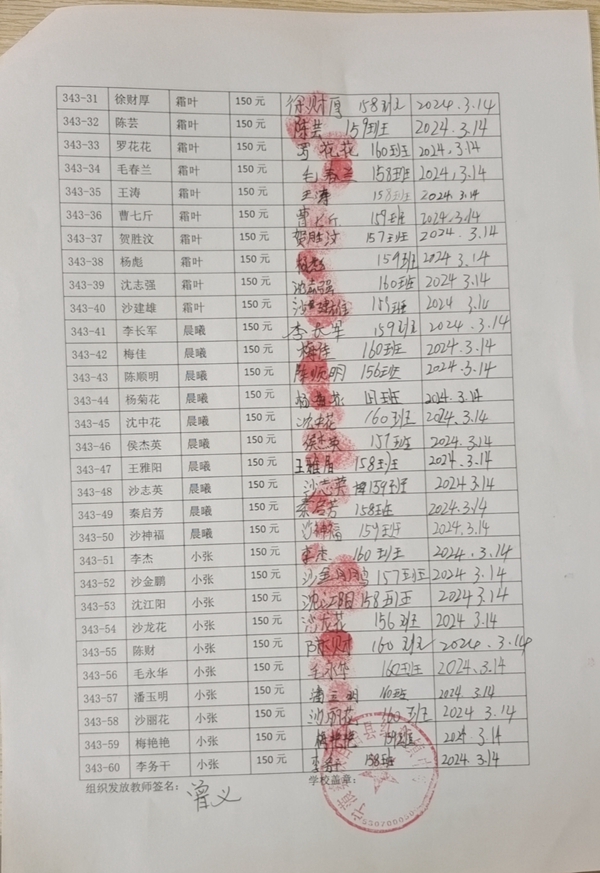 343-31 徐财厚 霜叶 150元 徐财厚 158班 2024.3.14
343-32 陈芸 霜叶 150元 陈芸 159班 2024.3.14
343-33 罗花花 霜叶 150元 罗花花 160班 2024.3.14
343-34 毛春兰 霜叶 150元 毛春兰 158班 2024.3.14
343-35 王涛 霜叶 150元 王涛 158班 2024.3.14
343-36 曹七斤 霜叶 150元 曹七斤 159班 2024.3.14
343-37 贺胜汶 霜叶 150元 贺胜汶 157班 2024.3.14
343-38 杨彪 霜叶 150元 杨彪 159班 2024.3.14
343-39 沈志强 霜叶 150元 沈志强 160班 2024.3.14
343-40 沙建雄 霜叶 150元 沙建雄 159班 2024.3.14
343-41 李长军 晨曦 150元 李长军 159班 2024.3.14
343-42 梅佳 晨曦 150元 梅佳 160班 2024.3.14
343-43 陈顺明 晨曦 150元 陈顺明 156班 2024.3.14
343-44 杨菊花 晨曦 150元 杨菊花 2024.3.14
343-45 沈中花 晨曦 150元 沈中花 160班 2024.3.14
343-46 侯杰英 晨曦 150元 侯杰英 157班 2024.3.14
343-47 王雅阳 晨曦 150元 王雅眉 158班 2024.3.14
343-48 沙志英 晨曦 150元 沙志英 159班 2024.3.14
343-49 秦启芳 晨曦 150元 秦启芳 158班 2024.3.14
343-50 沙神福 晨曦 150元 沙神福 159班 2024.3.14
343-51 李杰 小张 150元 李杰 160班 2024.3.14
343-52 沙金鹏 小张 150元 沙金鹏 157班 2024.3.14
343-53 沈江阳 小张 150元 沈江阳 158班 2024.3.14
343-54 沙龙花 小张 150元 沙龙花 156班 2024.3.14
343-55 陈财 小张 150元 陈财 160班 2024.3.14
343-56 毛永华 小张 150元 毛永华 160班 2024.3.14
343-57 潘玉明 小张 150元 潘玉明 160班 2024.3.14
343-58 沙丽花 小张 150元 沙丽花 160班 2024.3.14
343-59 梅艳艳 小张 150元 梅艳艳 159班 2024.3.14
343-60 李务干 小张 150元 李务干 158班 2024.3.14
组织发放教师签名： 曾义 学校盖章：